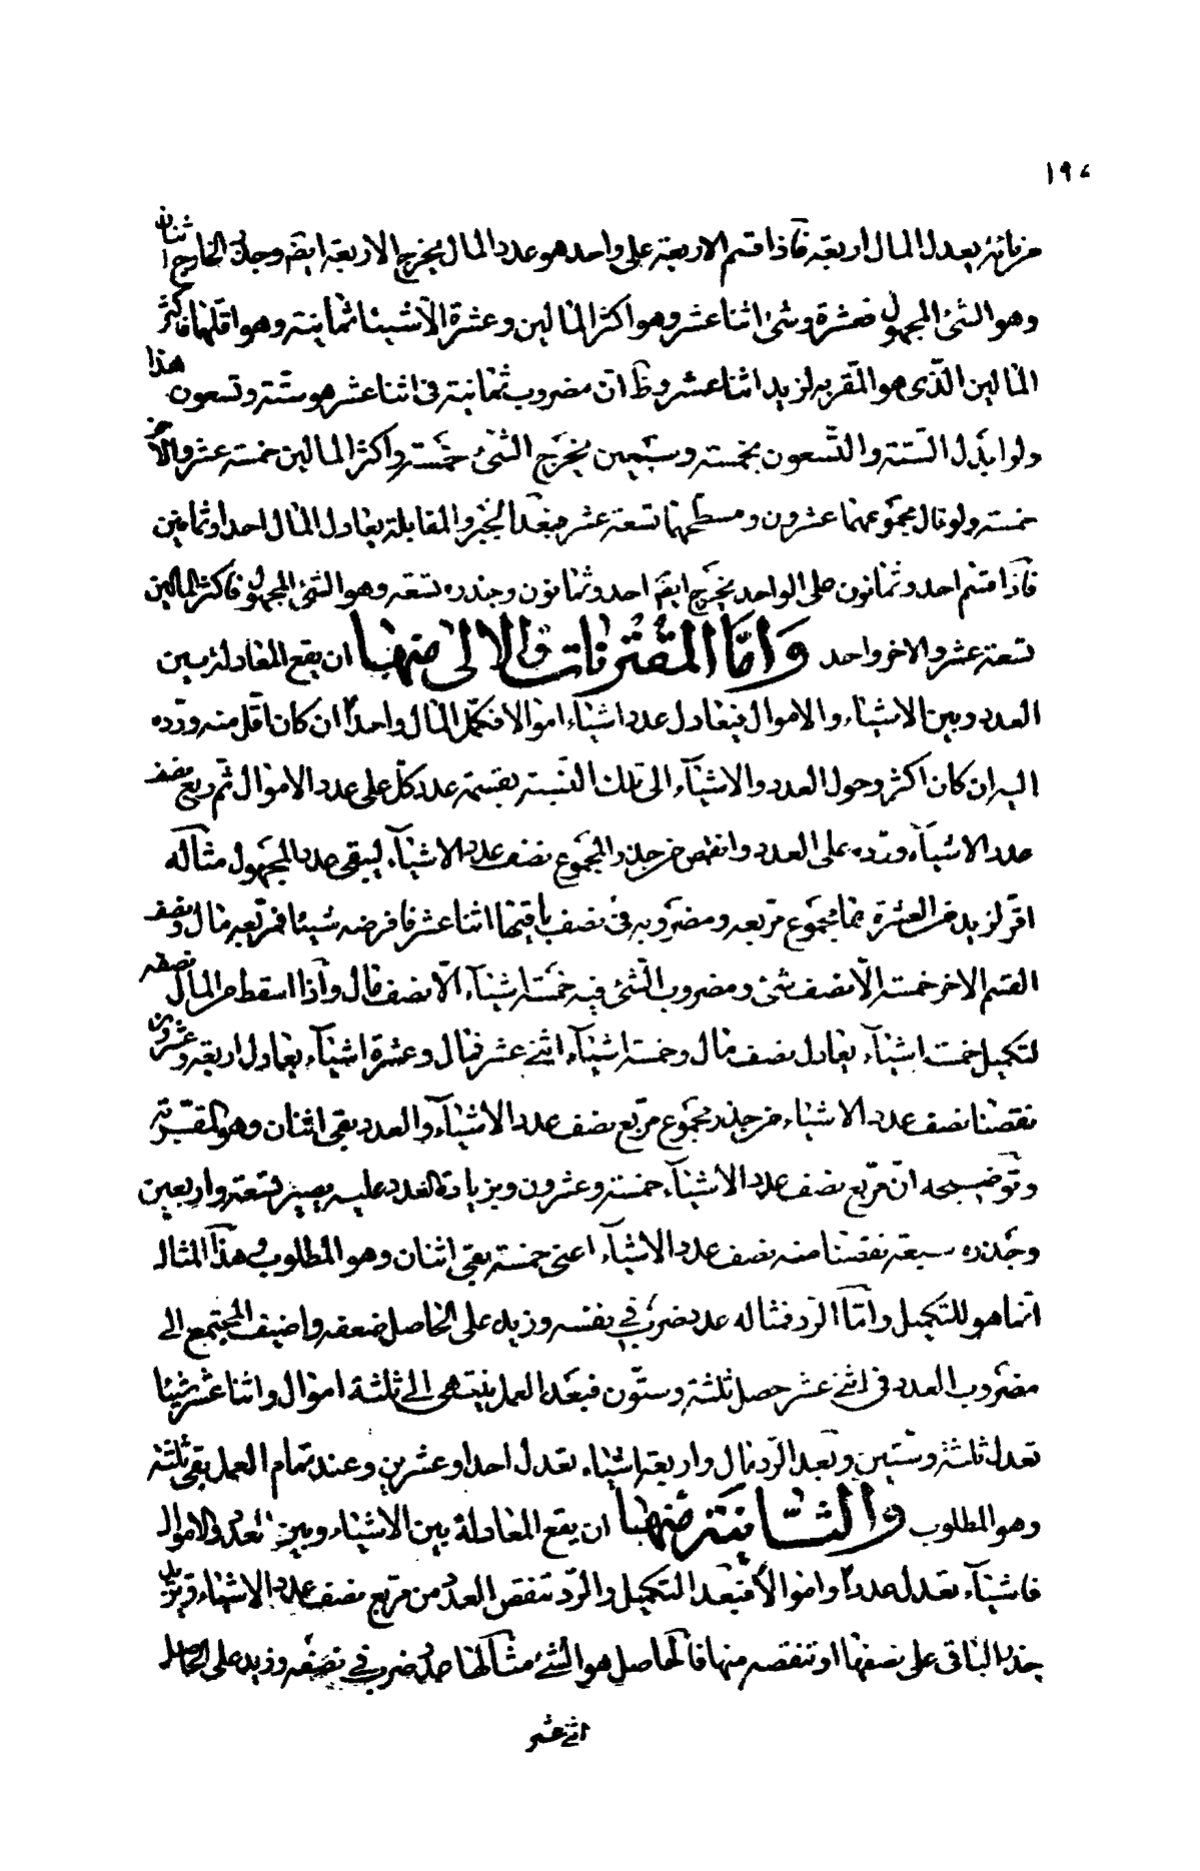 ١٩٤
من مائة يعدل المال اربعة فاذا قسم الاربعة على واحد هو عدد المال يخرج الاربعة ايضَ وجذر الخارج اثنان
وهو الشئ المجهول فعشرة وشئ اثنا عشر وهو اكثر المالين وعشرة الّا شيئا ثمانية وهو اقلهما فاكثر
المالين الّذى هو المقر به لزيد اثنا عشر وظَ انّ مضروب ثمانية فى اثنا عشر هو ستّة وتسعون هذا
ولو ابدل الستّة والتّسعون بخمسة وسبعين يخرج الشئ خمسة واكثر المالين خمسة عشر والآخر
خمسة ولو قال مجموعهما عشرون ومسطحهما تسعة عشر فبعد الجبر والمقابلة يعادل المال احدا وثمانين
فاذا قسم احد وثمانون على الواحد يخرج ايضَ احد وثمانون وجذره تسعة وهو الشئ المجهول فاكثر المالين
تسعة عشر والاخر واحد وَامّا المقترنات فالاولى منها ان يقع المعادلة بين
العدد وبين الاشياء والاموال فيعادل عدد اشياء اموالا فكمّل المال واحداً ان كان اقل منه وردّه
اليه ان كان اكثر وحول العدد والاشيآء الى تلك النّسبة بقسمة عدد كلّ على عدد الاموال ثم ربّع نصف
عدد الاشيآء وزده على العدد وانقص من جذر المجموع نصف عدد الاشيآء ليبقى عدد المجهول مثاله
اقرّ لزيد من العشرة بما مجموع مربّعه ومضروبه فى نصف باقيها اثنا عشر فافرضه شيئا فمربّعه مال ونصف
القسم الاخر خمسة الّا نصف شئ ومضروب الشئ فيه خمسة اشيآء الّا نصف مال واذا اسقط من المال نصفه
لتكميل خمسة اشيآء يعادل نصف مال وخمسة اشيآء اثنى عشر فمال وعشرة اشيآء يعادل اربعة وعشرين
نقصنا نصف عدد الاشياء من جذر مجموع مربّع نصف عدد الاشيآء والعدد بقى اثنان وهو المقر به
وتوضيحه انّ مربّع نصف عدد الاشيآء خمسة وعشرون وبزيادة العدد عليه يصير تسعة واربعين
وجذره سبعة نقصنا منه نصف عدد الاشيآء اعنى خمسة بقى اثنان وهو المطلوب وهذا المثال
انّما هو للتكميل وامّا الرّد فمثاله عدد ضرب فى نفسه وزيد على الحاصل ضعفه واضيف المجتمع الى
مضروب العدد فى اثنى عشر حصل ثلثة وستّون فبعد العمل ينتهى الى ثلثة اموال واثنا عشر شيئا
تعدل ثلثة وستّين وبعد الرّد مال واربعة اشياء تعدل احدا وعشرين وعند تمام العمل بقى ثلثة
وهو المطلوب والثّانية منها ان يقع المعادلة بين الاشياء وبين العدد والاموال
فاشيآء تعدل عدداً واموالاً فبعد التكميل والرّد تنقص العدد من مربّع نصف عدد الاشياء وتزيد
جذر الباقى على نصفها او تنقصه منها فالحاصل هو الشئ مثاله عدد ضرب فى نصفه وزيد على الحاصل
اثنى عشر